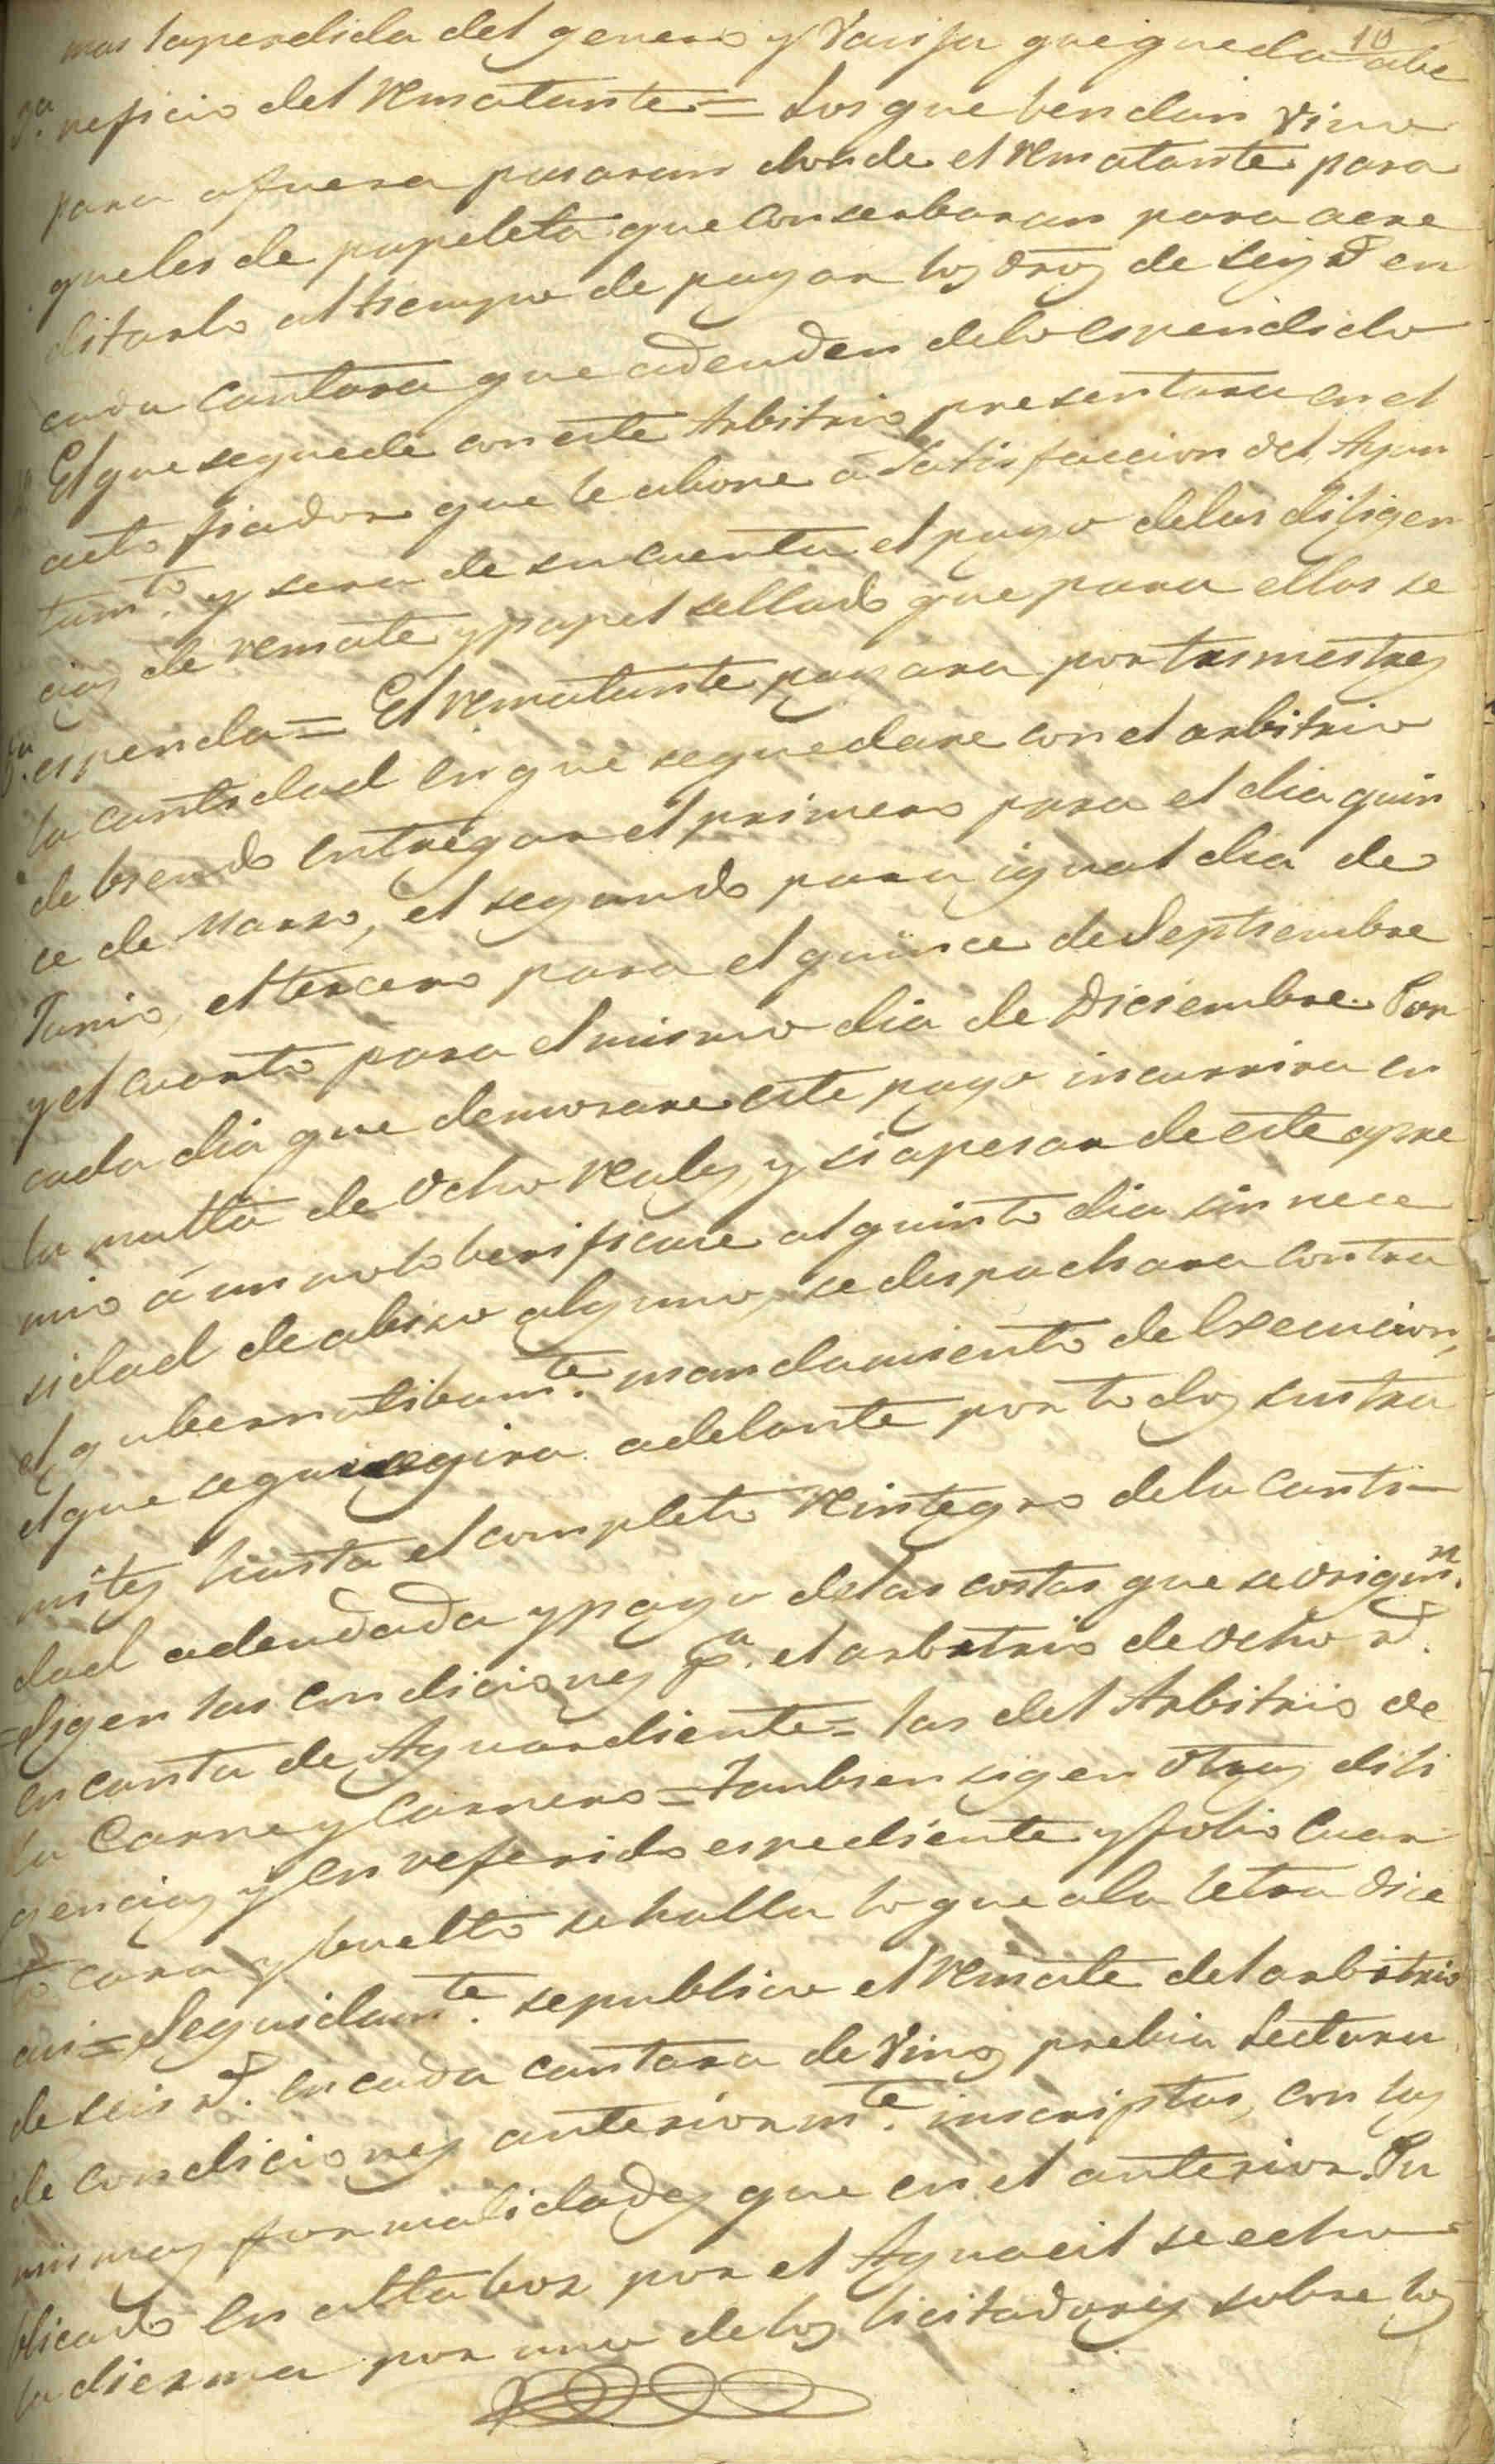 10
mas la perdida del genero y Vasija que queda abe
3.ª neficio del Rematante = Los que bendan Vino
para afuera pasaran donde el Rematante para
que les de papeleta que conserbaran para acre
ditarlo al tiempo de pagar los dros de seis r.s en
cada cantara que adeuden de lo espendido
El que se quede con este Arbitrio presentara en el
acto fiador que le abone á Satisfaccion del Ayun
tam.to y sera de su cuenta el pago de las diligen
cias de remate y papel sellado que para ellas se
5.ª espenda = El Rematante pagara por trimestres
la cantidad en que se quedare con el arbitrio
debiendo entregar el primero para el dia quin
ce de Marzo, el segundo para igual dia de
Junio, el tercero para el quince de Septiembre
y el cuarto para el mismo dia de Diciembre. Por
cada dia que demorare este pago incurrira en
la multa de ocho reales, y si apesar de este apre
mio á un no lo berificare al quinto dia sin nece
sidad de abiso alguno, se despachara contra
el gubernatibam.te mandamiento de Execucion,
el que seguira adelante por todos sus tra
mites hasta el completo reintegro de la canti-
dad adeudada y pago de las costas que se origin.n
=Sigen las condiciones p.a el arbitrio de ocho r.s
en canta de Aguardiente = las del Arbitrio de
la Carne y Carnero = Tanbien sigen otras dili
gencias y en referido espediente y folio cuar
to cara y buelto se halla lo que a la letra dice
asi = Seguidam.te se publico el Remate del arbitrio
de seis r.s en cada cantara de Vino, prebia Lectura
de condiciones anteriorm.te inscriptas, con las
mismas formalidades que en el anterior. Pu
blicado en alta boz por el Aguacil se echo
la diezma por uno de los licitadores sobre los